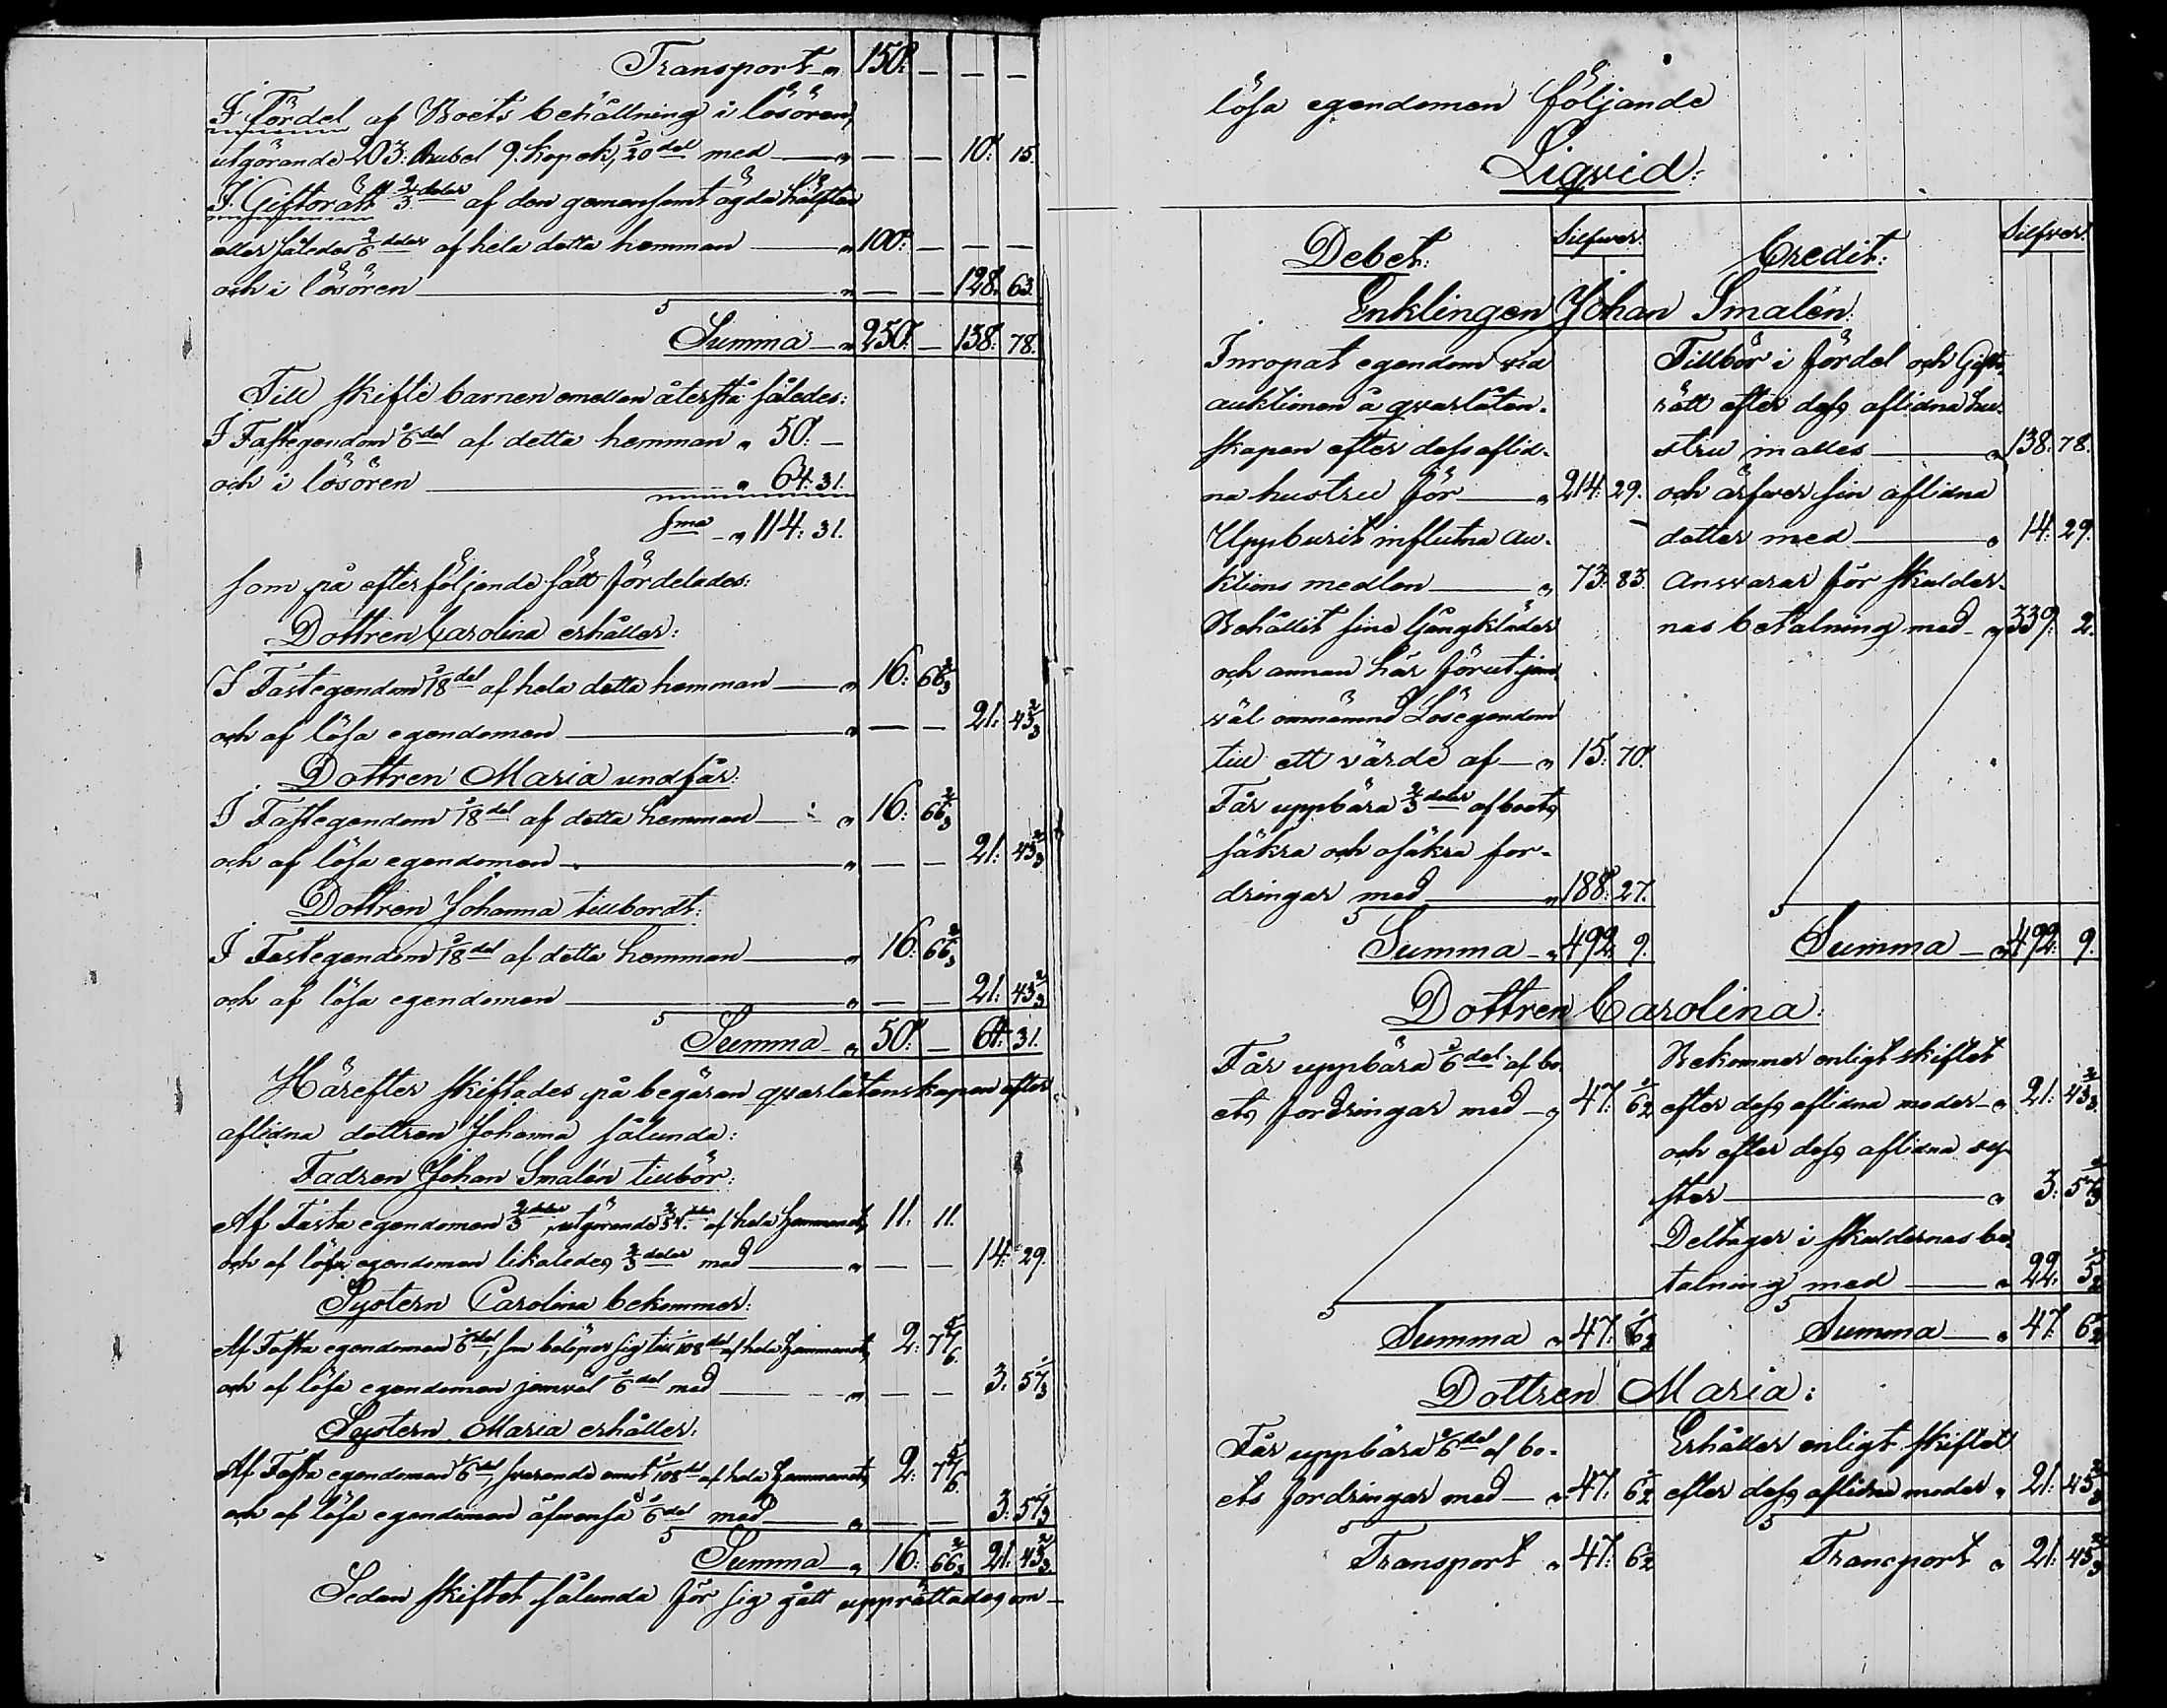 Transport " 150: — — —
I Fördel af Boets behållning i lösören,
utgörande 203: Rubel 9. Kopek, 1/20 del med — " — — 10: 15.
I Giftorätt 2/3 delar af den gemensamt ägda hälften
eller således 2/6 delar af hela detta hemman — " 100: — — —
och i lösören — " — — 128: 63.
Summa — " 250: — 138: 78.
Till skifte barnen emellan återstå således:
I Fastegendom 1/6 del af detta hemman " 50: —
och i lösören — " 64: 31.
S:ma — " 114: 31.
som på efterföljande sätt fördelades:
Dottren Carolina erhåller:
I Fastegendom 1/18 del af hela detta hemman — " 16: 66 2/3
och af lösa egendomen — " — — 21: 43 2/3
Dottren Maria undfår:
I Fastegendom 1/18 del af detta hemman — " 16: 66 2/3
och af lösa egendomen — " — — 21: 43 2/3
Dottren Johanna tillbördt:
I Fastegendom 1/18 del af detta hemman — " 16: 66 2/3
och af lösa egendomen — " — — 21: 43 2/3
Summa — " 50: — 64: 31.
Härefter skiftades på begäran qvarlåtenskapen efter
aflidna dottren Johanna sålunda:
Fadren Johan Smalén tillbör:
Af Fasta egendomen 2/3 delar, utgörande 2/54 delar af hela hemmanet, 11: 11.
och af lösa egendomen likaledes 2/3 delar med — " — — 14: 29.
Systern Carolina bekommer:
Af Fasta egendomen 1/6 del, som belöper sig till 1/108 del af hela hemmanet, 2: 77 5/6
och af lösa egendomen jemväl 1/6 del med — " — — 3: 57 1/3
Systern Maria erhåller:
Af Fasta egendomen 1/6 del, svarande emot 1/108 del af hela hemmanet, 2: 77 5/6
och af lösa egendomen äfvenså 1/6 del med — " — — 3: 57 1/3
Summa — " 16: 66 2/3 21: 43 2/3.
Sedan skiftet sålunda för sig gått upprättades om
lösa egendomen följande
Liqvid:
Debet: Silfver. Credit: Silfver.
Enklingen Johan Smalén:
Inropat egendom vid
auktionen å qvarlåten-
skapen efter dess aflid-
na hustru för — " 214: 29.
Uppburit influtna au-
ktions medlen — " 73: 83.
Behållit sina gångkläder
och annan här förut jem
väl omnämnd Lösegendom
till ett värde af — " 15: 70.
Får uppbära 2/3 delar af boets
säkra och osäkra for-
dringar med — " 188: 27.
Summa — " 492: 9.
Tillbör i fördel och Gifto-
rätt efter dess aflidna hu-
stru in alles — " 138: 78.
och ärfver sin aflidna
dotter med — " 14: 29.
Ansvarar för skulder-
nas betalning med — " 339: 2.
Summa — " 492: 9.
Dottren Carolina:
Får uppbära 1/6 del af bo-
ets fordringar med — " 47: 6 1/2
Summa " 47: 6 1/2
Bekommer enligt skiftet
efter dess aflidna moder — " 21: 43 2/3
och efter dess aflidna sy-
ster — " 3: 57 1/3
Deltager i skuldernas be-
talning med — " 22: 5 1/2
Summa — " 47: 6 1/2
Dottren Maria:
Får uppbära 1/6 del af bo-
ets fordringar med — " 47: 6 1/2
Transport " 47: 6 1/2
Erhåller enligt skiftet
efter dess aflidna moder " 21: 43 2/3
Transport " 21: 43 2/3